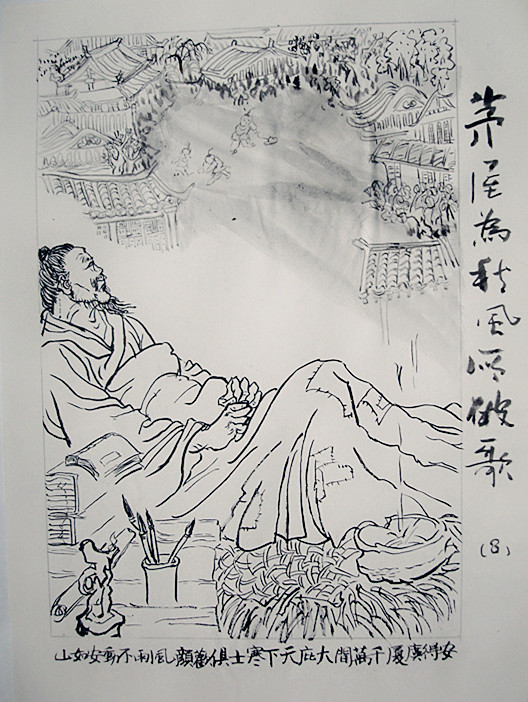 茅屋為秋風所破歌
(8)
安得廣廈千萬間大庇天下寒士俱歡顏風雨不動安如山